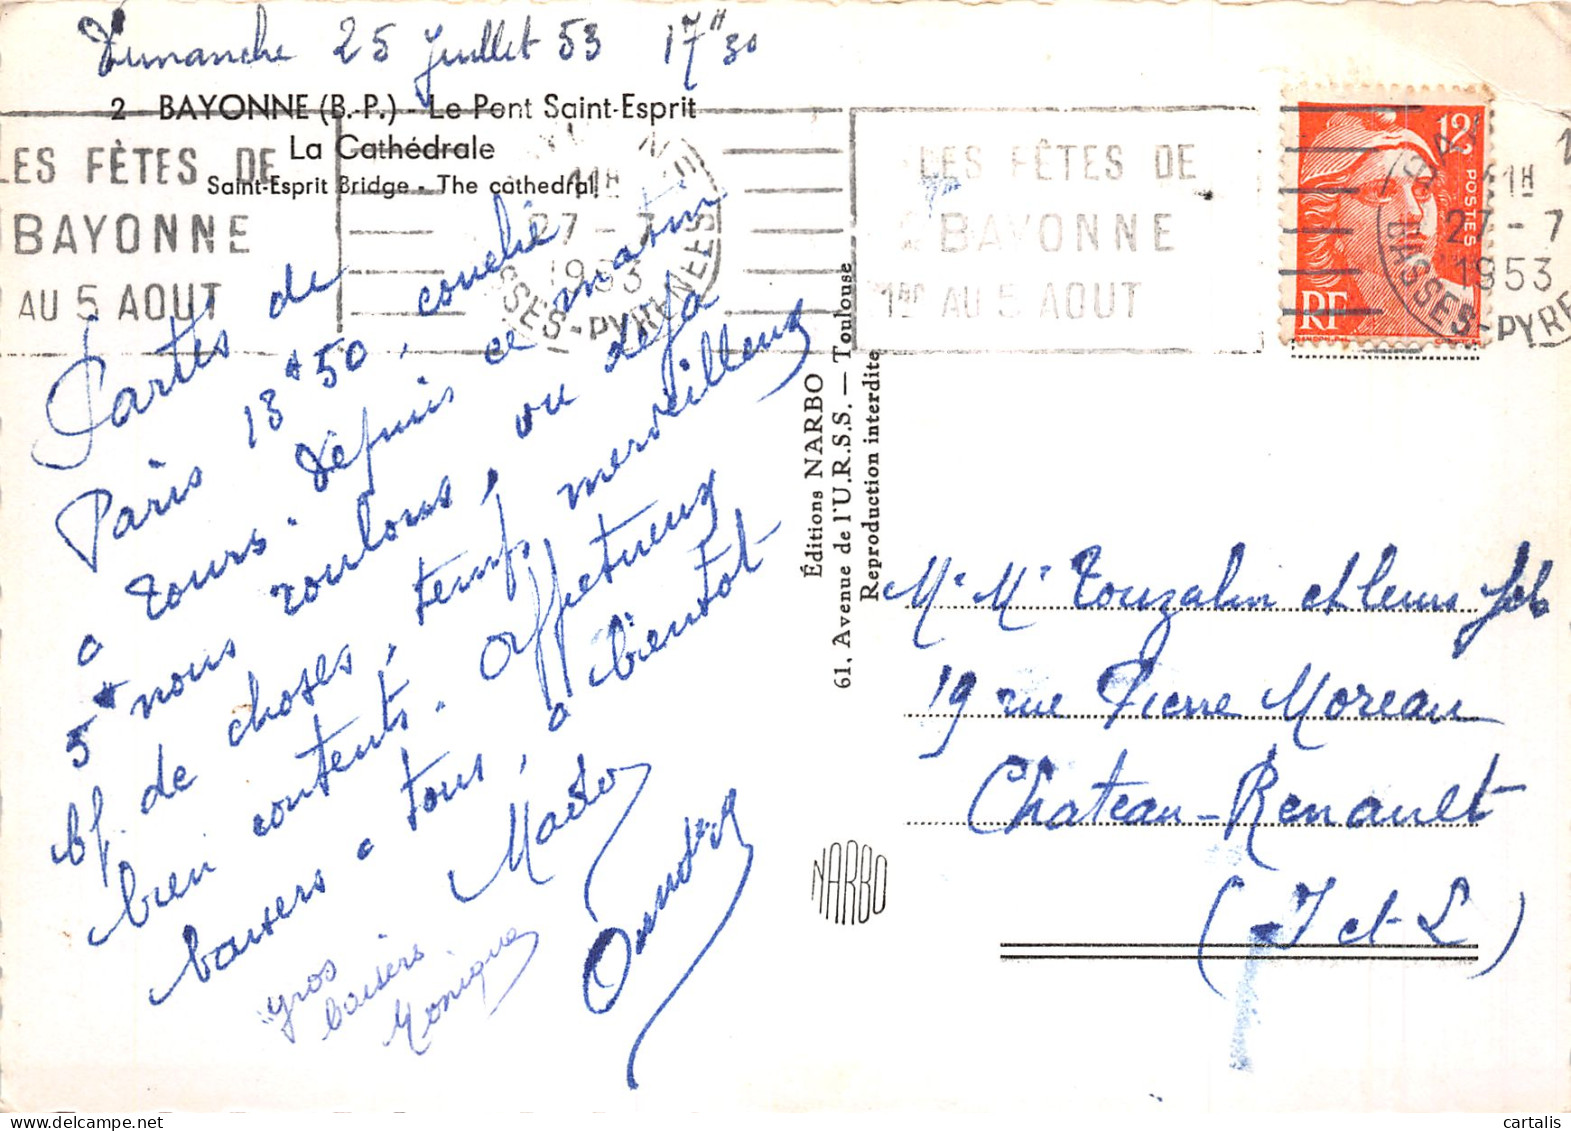 Dimanche 25 Juillet 53 17H30
2 - BAYONNE (B.-P.) - Le Pont Saint-Esprit
La Cathédrale
Saint-Esprit Bridge - The cathedral
LES FÊTES DE
BAYONNE
AU 5 AOUT
11H
27 - 7
1953
BASSES-PYRENEES
Parties de
Paris 13h50, couché
a Tours. Depuis ce matin
5h nous roulons, vu déjà
bp. de choses, temps merveilleux
bien contents. Affectueux
baisers a tous, a bientot
Mado
gros
baisers
Monique
Éditions NARBO
61, Avenue de l'U.R.S.S. — Toulouse
Reproduction interdite
NARBO
LES FÊTES DE
BAYONNE
1er AU 5 AOUT
12
POSTES
RF
11H
27 - 7
1953
BASSES-PYRE
Mr Mme Touzalin et leurs fils
19 rue Pierre Moreau
Chateau-Renault
(I et L)
cartalis